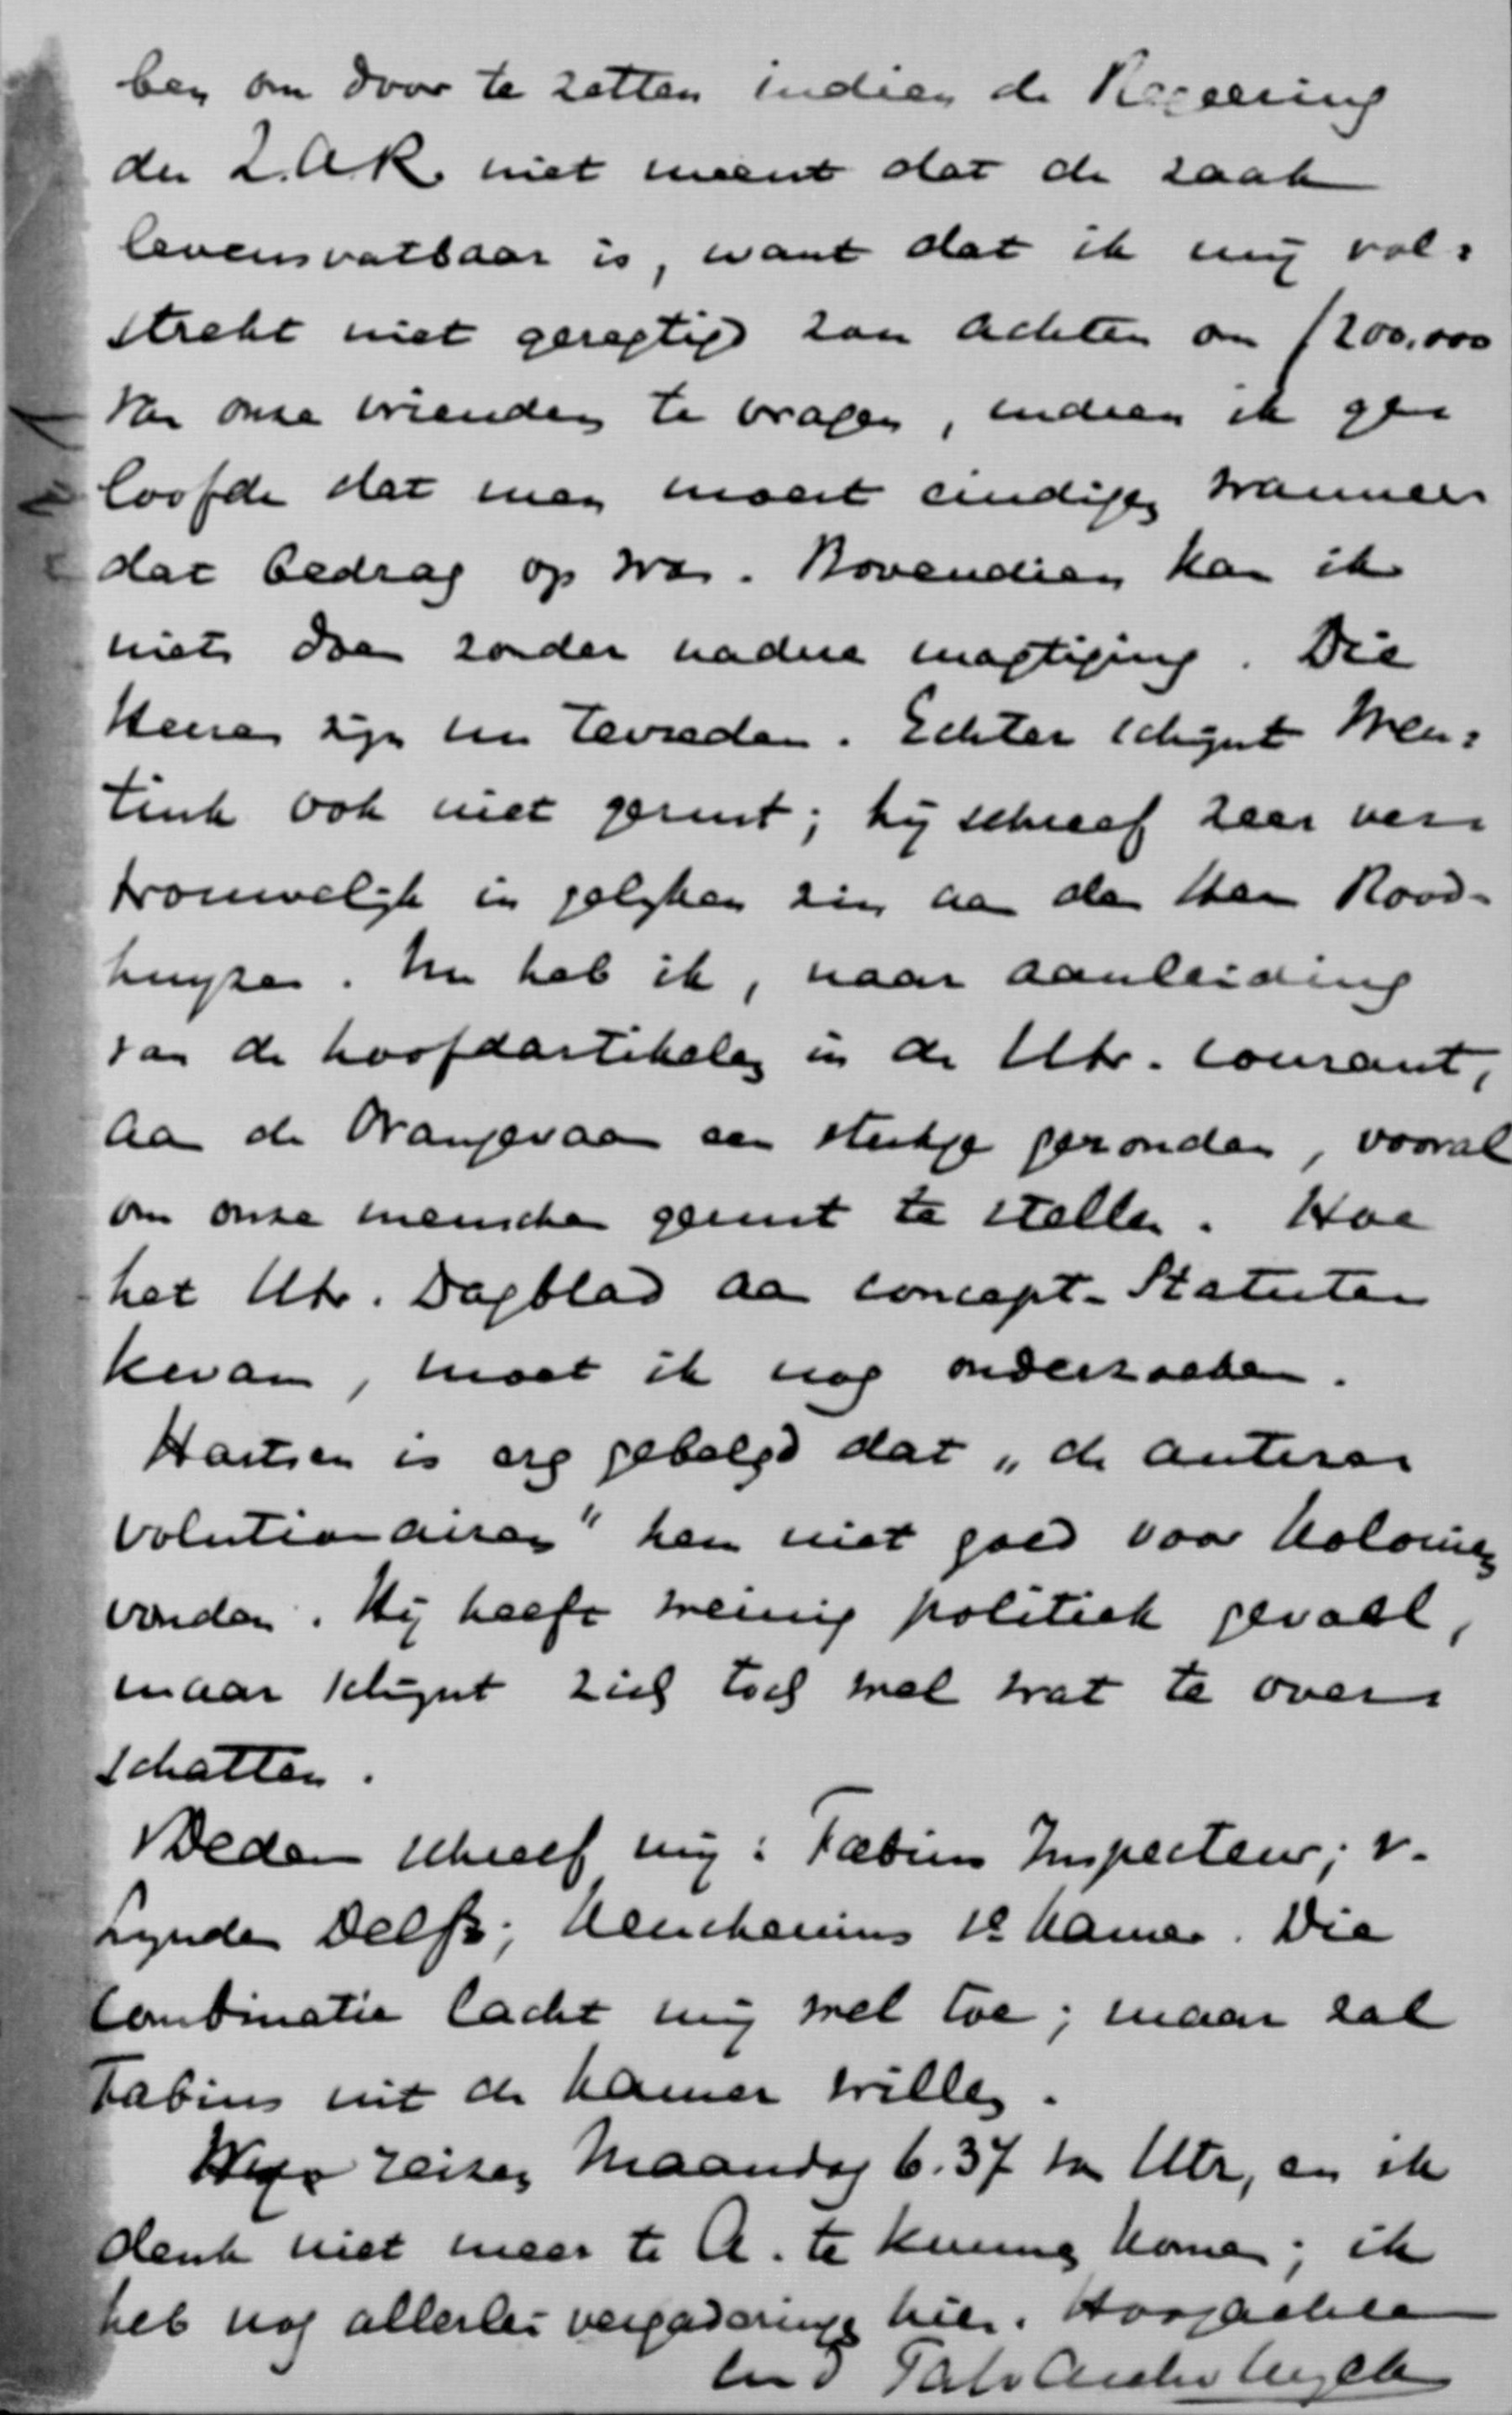 ben om door te zetten indien de Regeering
der Z.A.R. niet meent dat de zaak
levensvatbaar is, want dat ik mij vol=
strekt niet geregtigd zou achten om ƒ200.000
van onze vrienden te vragen, indien ik ge=
loofde dat men moest eindigen wanneer
dat bedrag op was. Bovendien kan ik
niets doen zonder nadere magtiging. Die
Heeren zijn nu tevreden. Echter schijnt Men=
tink ook niet gerust; hij schreef zeer ver=
trouwelijk in gelyken zin aan den Heer Rood-
huyzen. Nu heb ik, naar aanleiding
van de hoofdartikelen in de Utr. Courant,
aan de Oranjevaan een stukje gezonden, vooral
om onze menschen gerust te stellen. Hoe
het Utr. Dagblad aan concept-Statuten
kwam, moet ik nog onderzoeken.
Hartsen is erg gebelgd dat „de antire=
volutionairen" hem niet goed voor Koloniën
vonden. Hij heeft weinig politiek gevoel,
maar schijnt zich toch wel wat te over=
schatten.
schreef mij: Fabius Inspecteur; v.
Lynden Delft; Keuchenius 1e Kamer. Die
Combinatie lacht mij wel toe; maar zal
Fabius uit de Kamer willen.
reizen Maandag 6.37 van Utr, en ik
denk niet meer te A. te kunnen komen; ik
heb nog allerlei vergaderingen hier. Hoogachten